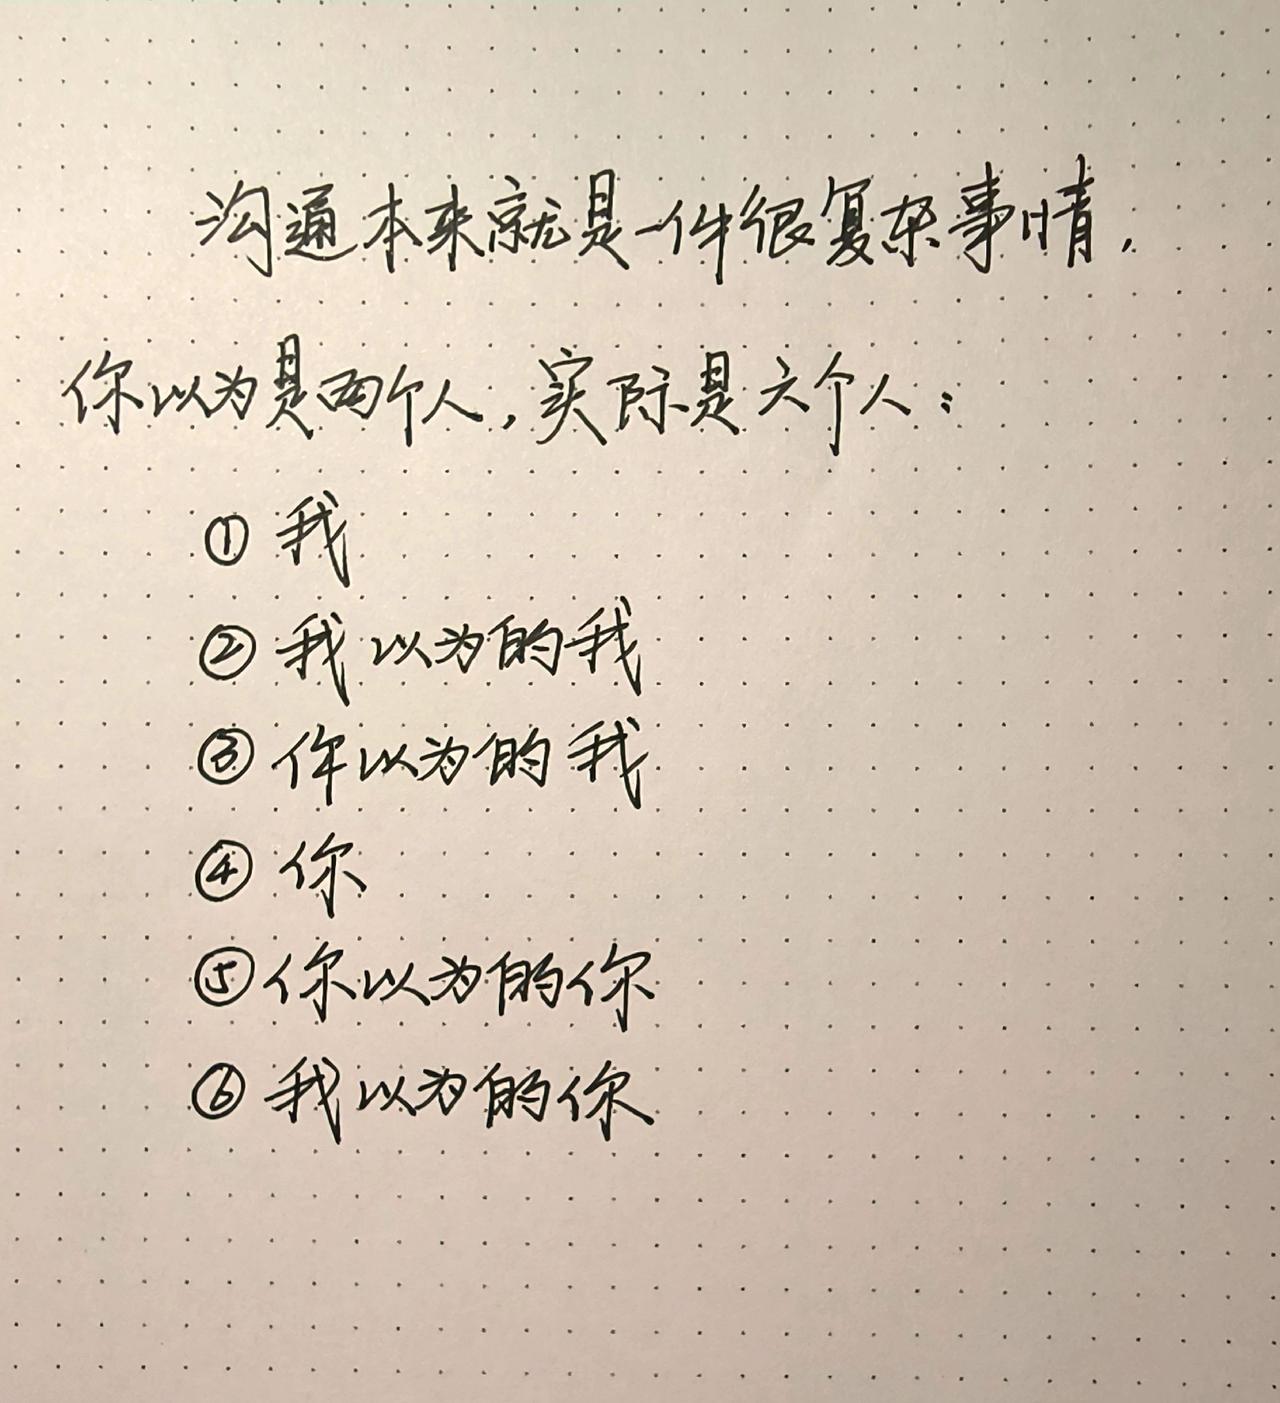 沟通本来就是一件很复杂事情，
你以为是两个人，实际是六个人：
① 我
② 我以为的我
③ 你以为的我
④ 你
⑤ 你以为的你
⑥ 我以为的你